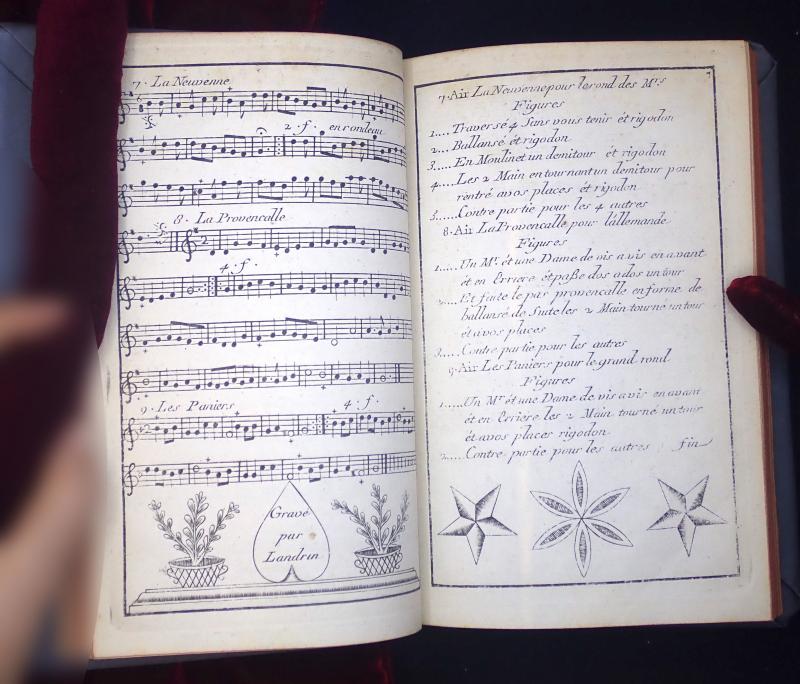 7. La Neuvenne
2. f. en rondeau
8. La Provencalle
4. f.
9. Les Paniers
4. f.
Gravé
par
Landrin
7
7. Air La Neuvenne pour le rond des Mrs
Figures
1.... Traversé 4 Sans vous tenir ét rigodon
2... Ballansé ét rigodon
3..... En Moulinet un demitour ét rigodon
4.... Les 2 Main en tournant un demitour pour
rentré avos places ét rigodon
5..... Contre partie pour les 4 autres
8. Air La Provencalle pour lallemande
Figures
1..... Un Mr. ét une Dame de vis a vis en avant
ét en Erriere ét paße dos ados un tour
2.... Et faite le pas provencalle en forme de
ballansé de Suite les 2 Main tourné un tour
ét avos places
3..... Contre partie pour les autres
9. Air Les Paniers pour le grand rond
Figures
1..... Un Mr ét une Dame de vis a vis en avant
ét en Erriere les 2 Main tourné un tour
ét avos places rigodon
2..... Contre partie pour les autres fin